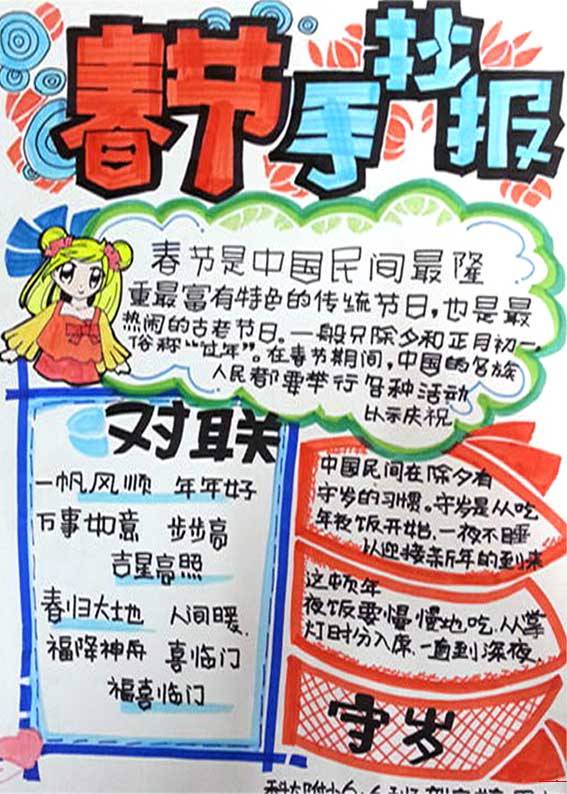 春节手抄报
春节是中国民间最隆
重最富有特色的传统节日,也是最
热闹的古老节日。一般只除夕和正月初一,
俗称“过年”。在春节期间,中国的各族
人民都要举行各种活动
以示庆祝
对联
一帆风顺 年年好
万事如意 步步高
吉星高照
春归大地 人间暖.
福降神舟 喜临门
福喜临门
中国民间在除夕有
守岁的习惯。守岁是从吃
年夜饭开始,一夜不睡
以迎接新年的到来
这顿年
夜饭要慢慢地吃.从掌
灯时分入席.一直到深夜.
守岁